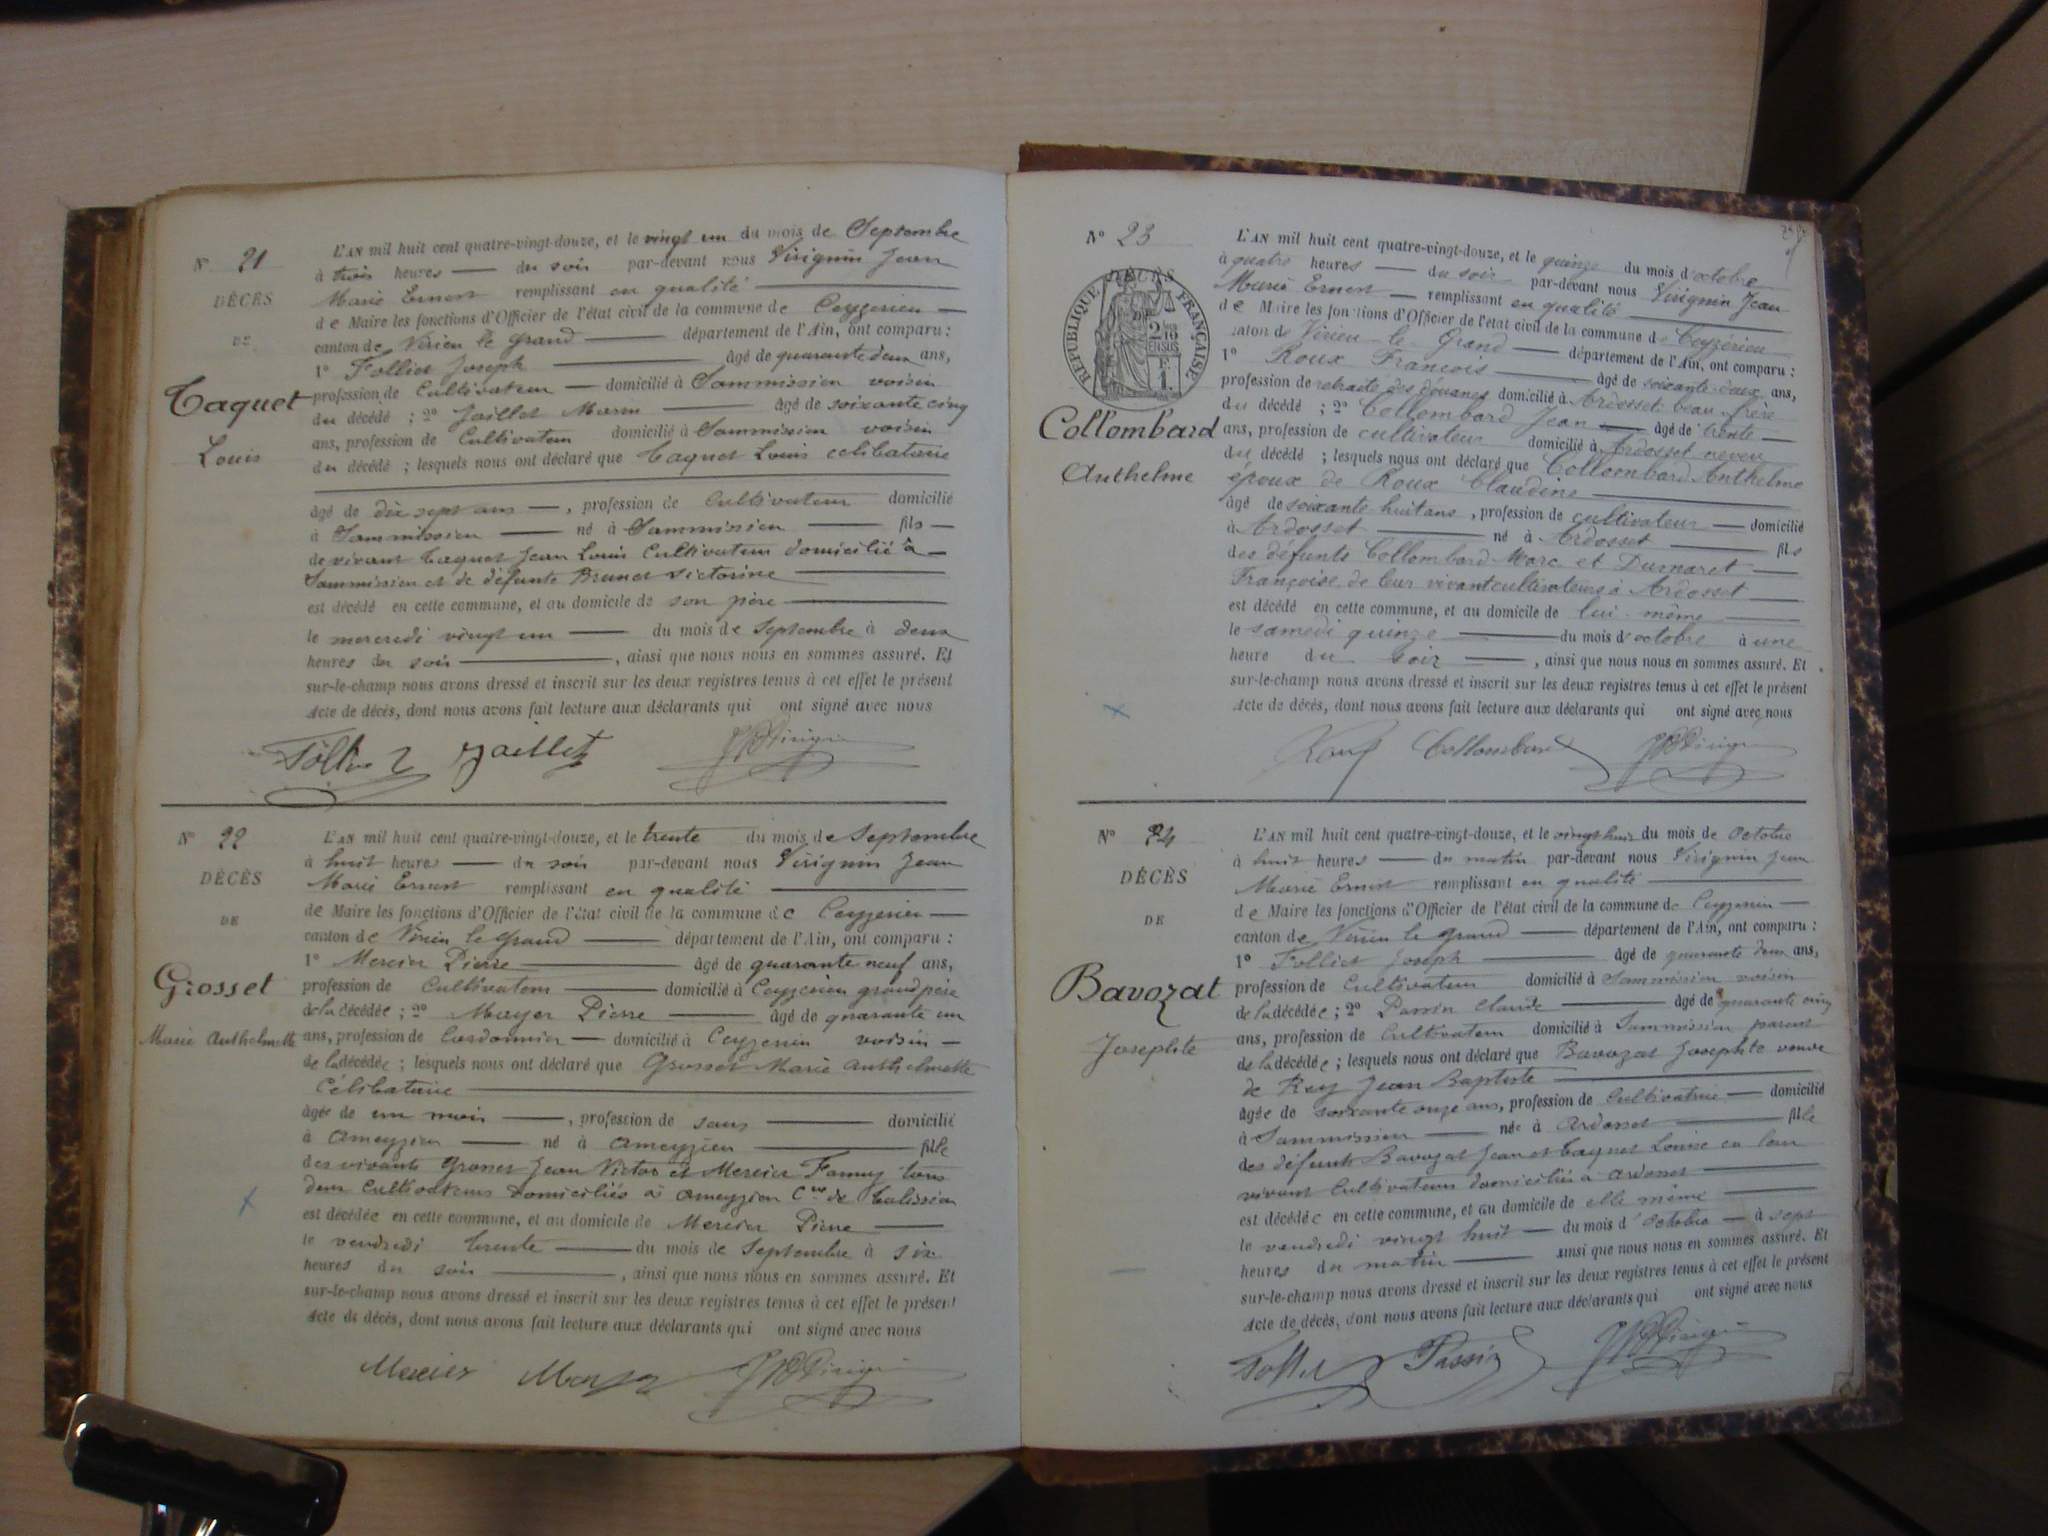 N° 21
DÉCÈS
DE
Taquet
Louis
L'AN mil huit cent quatre-vingt-douze, et le vingt un du mois de Septembre
à trois heures — du soir par-devant nous Virignin Jean
Marie Ernest remplissant en qualité
de Maire les fonctions d'Officier de l'état civil de la commune de Ceyzerieu
canton de Virieu le Grand département de l'Ain, ont comparu :
1° Folliet Joseph âgé de quarante deux ans,
profession de Cultivateur domicilié à Sammissieu voisin
du décédé ; 2° Jaillet Marin âgé de soixante cinq
ans, profession de Cultivateur domicilié à Sammissieu voisin
du décédé ; lesquels nous ont déclaré que Taquet Louis celibataire
âgé de dix sept ans , profession de Cultivateur domicilié
à Sammissieu né à Sammissieu fils
de vivant Taquet Jean Louis Cultivateur domicilié à
Sammissieu et de défunte Brunet Victorine
est décédé en cette commune, et au domicile de son père
le mercredi vingt un du mois de Septembre à deux
heures du soir , ainsi que nous nous en sommes assuré. Et
sur-le-champ nous avons dressé et inscrit sur les deux registres tenus à cet effet le présent
Acte de décès, dont nous avons fait lecture aux déclarants qui ont signé avec nous
Folliet Jaillet
N° 22
DÉCÈS
DE
Grosset
Marie Anthelmette
L'AN mil huit cent quatre-vingt-douze, et le trente du mois de Septembre
à huit heures — du soir par-devant nous Virignin Jean
Marie Ernest remplissant en qualité
de Maire les fonctions d'Officier de l'état civil de la commune de Ceyzerieu
canton de Virieu le Grand département de l'Ain, ont comparu :
1° Mercier Pierre âgé de quarante neuf ans,
profession de Cultivateur domicilié à Ceyzerieu grand père
de la décédée ; 2° Mayer Pierre âgé de quarante un
ans, profession de Cordonnier domicilié à Ceyzerieu voisin
de la décédée ; lesquels nous ont déclaré que Grosset Marie Anthelmette
Célibataire
âgée de un mois , profession de sans domicilié
à Ameyzieu né à Ameyzieu fille
des vivants Grosset Jean Victor et Mercier Fanny tous
deux Cultivateurs domiciliés à Ameyzieu Cne de Talissieu
est décédée en cette commune, et au domicile de Mercier Pierre
le vendredi trente du mois de Septembre à six
heures du soir , ainsi que nous nous en sommes assuré. Et
sur-le-champ nous avons dressé et inscrit sur les deux registres tenus à cet effet le présent
Acte de décès, dont nous avons fait lecture aux déclarants qui ont signé avec nous
Mercier Mayer
N° 23
DÉCÈS
DE
RÉPUBLIQUE FRANÇAISE
2/10 EN SUS
F. 1.
Collombard
Anthelme
L'AN mil huit cent quatre-vingt-douze, et le quinze du mois d'octobre
à quatre heures — du soir par-devant nous Virignin Jean
Marie Ernest remplissant en qualité
de Maire les fonctions d'Officier de l'état civil de la commune de Ceyzérieu
canton de Virieu le Grand département de l'Ain, ont comparu :
1° Roux François âgé de soixante-deux ans,
profession de retraité des douanes domicilié à Ardosset beau-frère
du décédé ; 2° Collombard Jean âgé de trente
ans, profession de cultivateur domicilié à Ardosset neveu
du décédé ; lesquels nous ont déclaré que Collombard Anthelme
époux de Roux Claudine
âgé de soixante huit ans , profession de cultivateur domicilié
à Ardosset né à Ardosset fils
des défunts Collombard Marc et Dumaret
Françoise de leur vivant cultivateurs à Ardosset
est décédé en cette commune, et au domicile de lui-même
le samedi quinze du mois d'octobre à une
heure du soir , ainsi que nous nous en sommes assuré. Et
sur-le-champ nous avons dressé et inscrit sur les deux registres tenus à cet effet le présent
Acte de décès, dont nous avons fait lecture aux déclarants qui ont signé avec nous
Roux Collombard
N° 24
DÉCÈS
DE
Bavozat
Josephte
L'AN mil huit cent quatre-vingt-douze, et le vingt huit du mois de Octobre
à huit heures — du matin par-devant nous Virignin Jean
Marie Ernest remplissant en qualité
de Maire les fonctions d'Officier de l'état civil de la commune de Ceyzerieu
canton de Virieu le Grand département de l'Ain, ont comparu :
1° Folliet Joseph âgé de quarante deux ans,
profession de Cultivateur domicilié à Sammissieu voisin
de la décédée ; 2° Passin Claude âgé de quarante cinq
ans, profession de Cultivateur domicilié à Sammissieu parent
de la décédée ; lesquels nous ont déclaré que Bavozat Josephte veuve
de Rey Jean Baptiste
âgée de soixante onze ans, profession de Cultivatrice domicilié
à Sammissieu née à Ardosset fille
des défunts Bavozat Jean et Taquet Louise en leur
vivant Cultivateurs domiciliés à Ardosset
est décédée en cette commune, et au domicile de elle même
le vendredi vingt huit du mois d'Octobre à sept
heures du matin ainsi que nous nous en sommes assuré. Et
sur-le-champ nous avons dressé et inscrit sur les deux registres tenus à cet effet le présent
Acte de décès, dont nous avons fait lecture aux déclarants qui ont signé avec nous
Folliet Passin